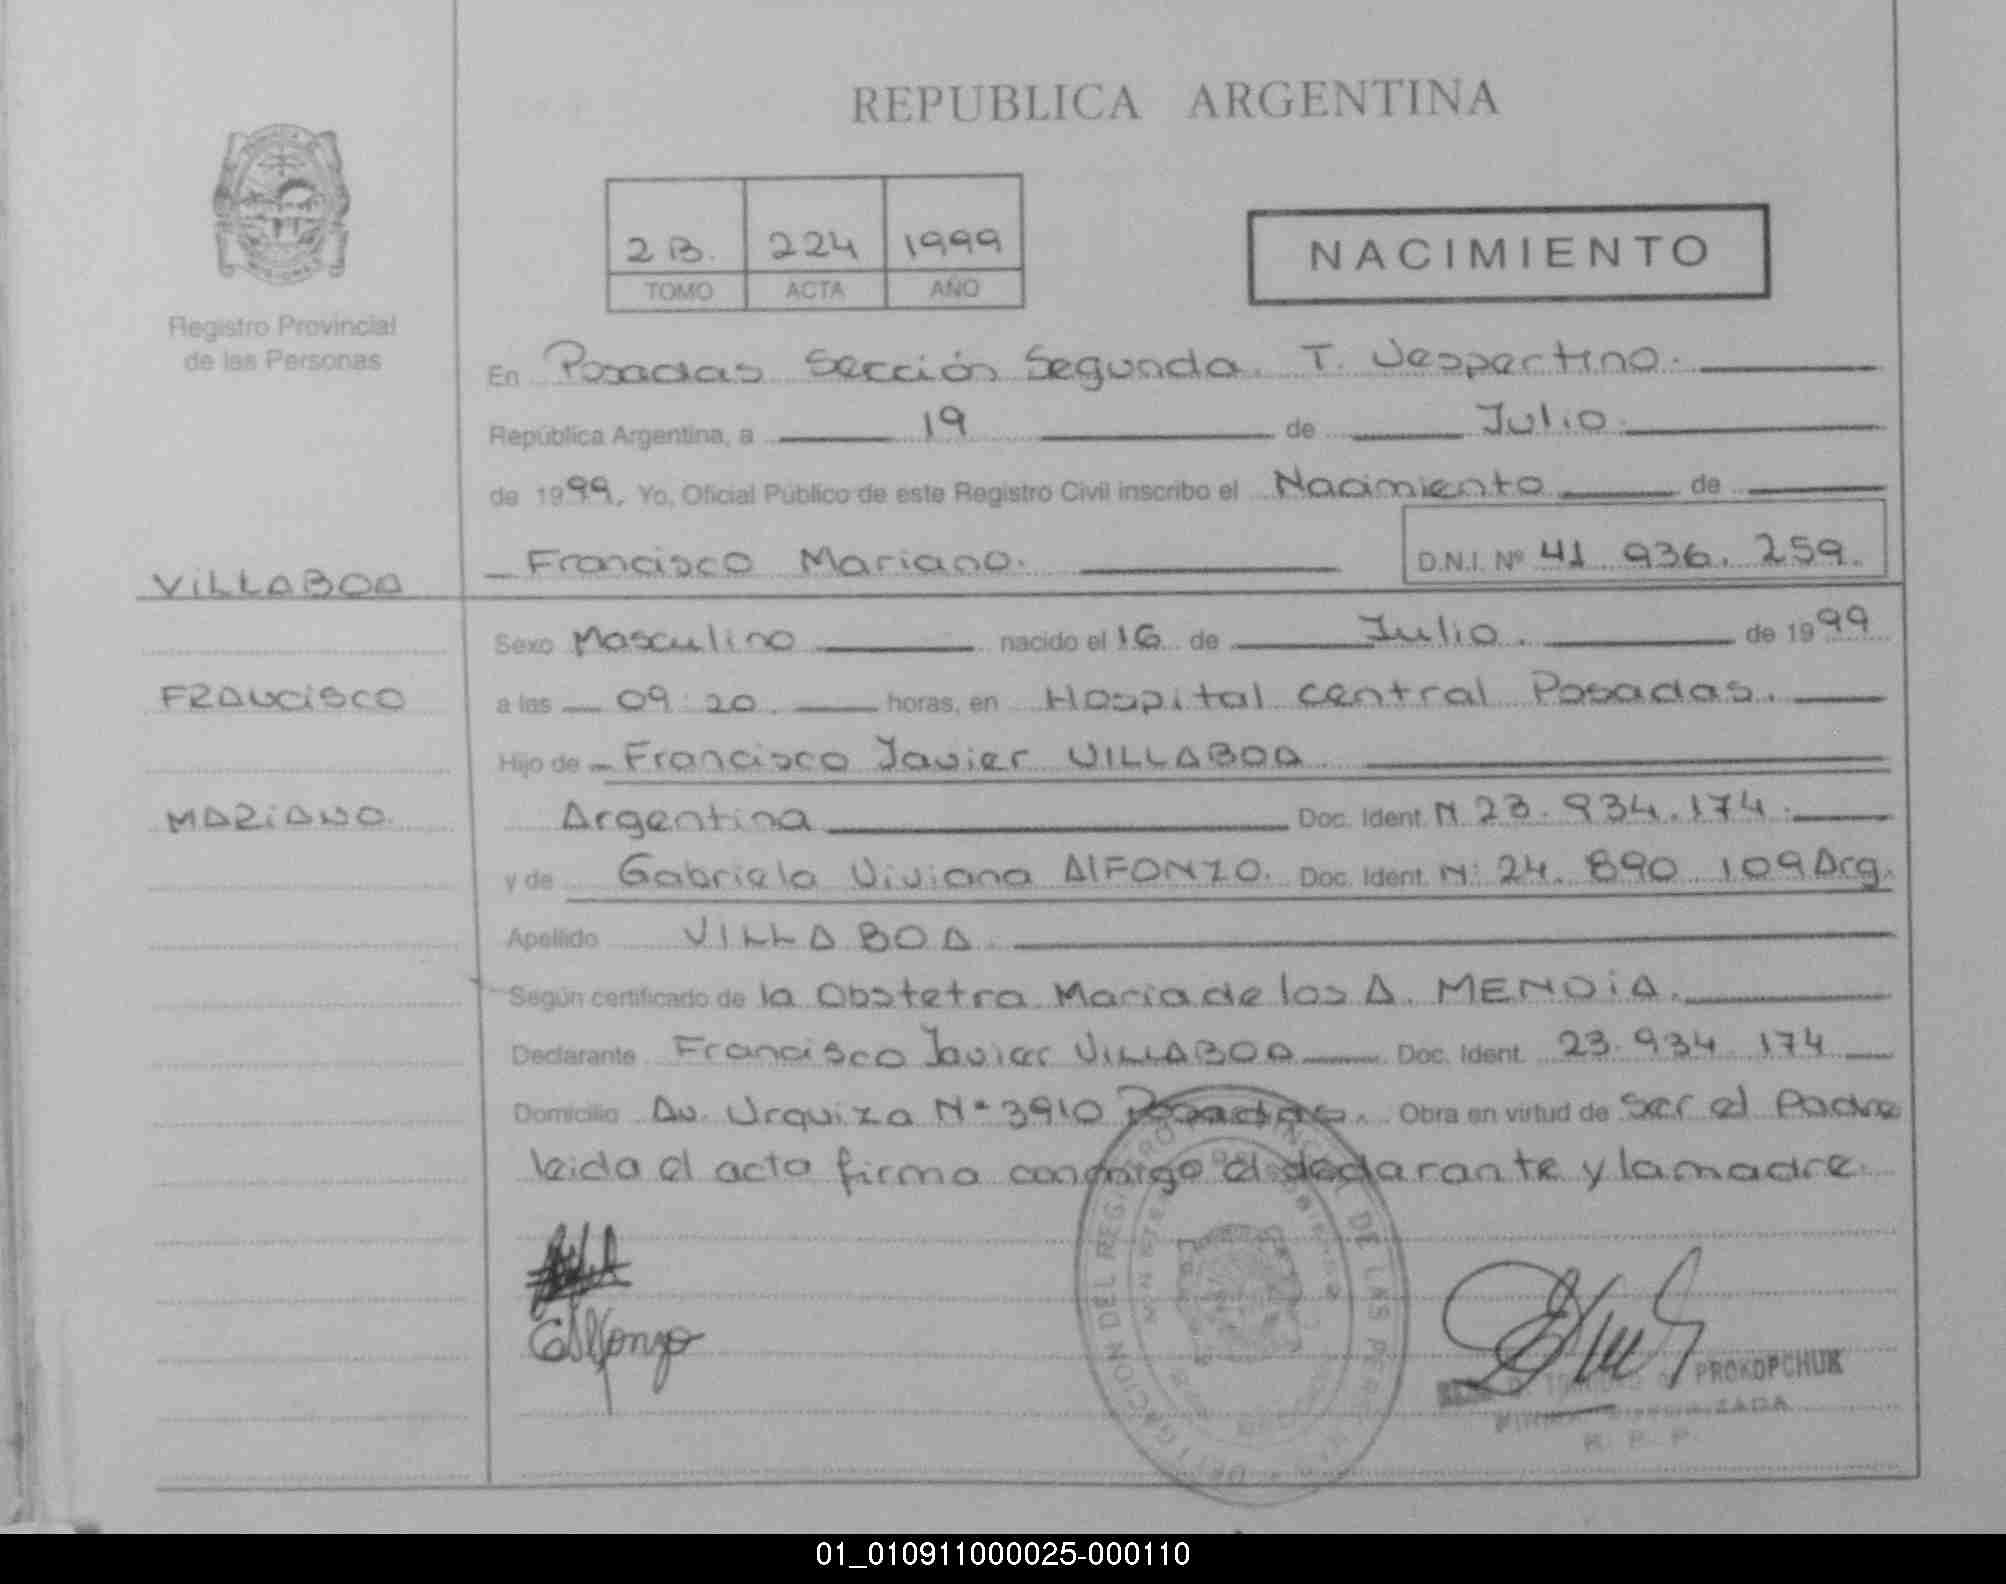 REPUBLICA ARGENTINA
2 B. 224 1999
TOMO ACTA AÑO
NACIMIENTO
Registro Provincial
de las Personas
En Posadas Sección Segunda. T. Vespertino.
República Argentina, a 19 de Julio.
de 1999. Yo, Oficial Público de este Registro Civil inscribo el Nacimiento de
Francisco Mariano. D.N.I. Nº 41 936. 259.
VILLABOA
FRANCISCO
MARIANO.
Sexo Masculino nacido el 16 de Julio. de 1999
a las 09:20. horas, en Hospital central Posadas.
Hijo de Francisco Javier VILLABOA
Argentina Doc. Ident. N 23.934.174.
y de Gabriela Viviana AlFONZO. Doc. Ident. N: 24. 890 109 Arg.
Apellido VILLABOA
Según certificado de la Obstetra Maria de los A. MENDiA.
Declarante Francisco Javier VILLABOA Doc. Ident. 23.934 174
Domicilio Av. Urquiza Nº 3910 Posadas. Obra en virtud de Ser el Padre
leida el acta firma conmigo el declarante y la madre.
GAlfonzo
DELEGACION DEL REGISTRO PROVINCIAL DE LAS PERSONAS
PROKOPCHUK
R. P. P.
01_010911000025-000110